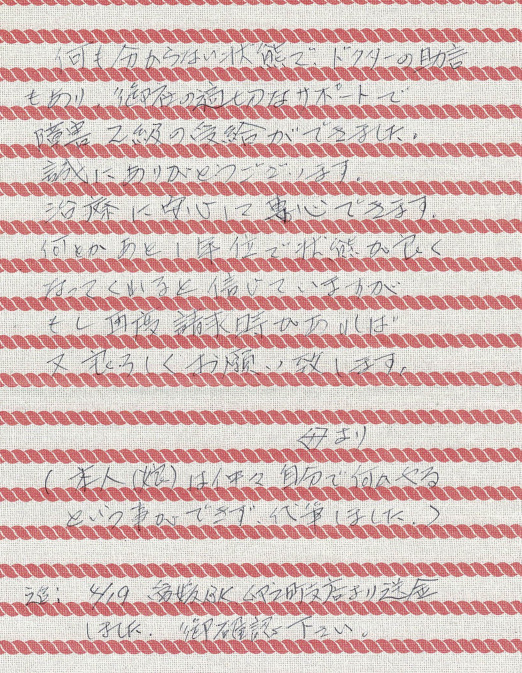 何も分からない状態で、ドクターの助言
もあり、御社の適切なサポートで
障害2級の受給ができました。
誠にありがとうございます。
治療に安心して専心できます。
何とかあと1年位で状態が良く
なってくれると信じていますが
もし再度請求時があれば
又よろしくお願い致します。
母より
(本人(娘)は中々自分で何かやる
という事ができず、代筆しました。)
追: 4/19 BK 支店より送金
しました。御確認下さい。